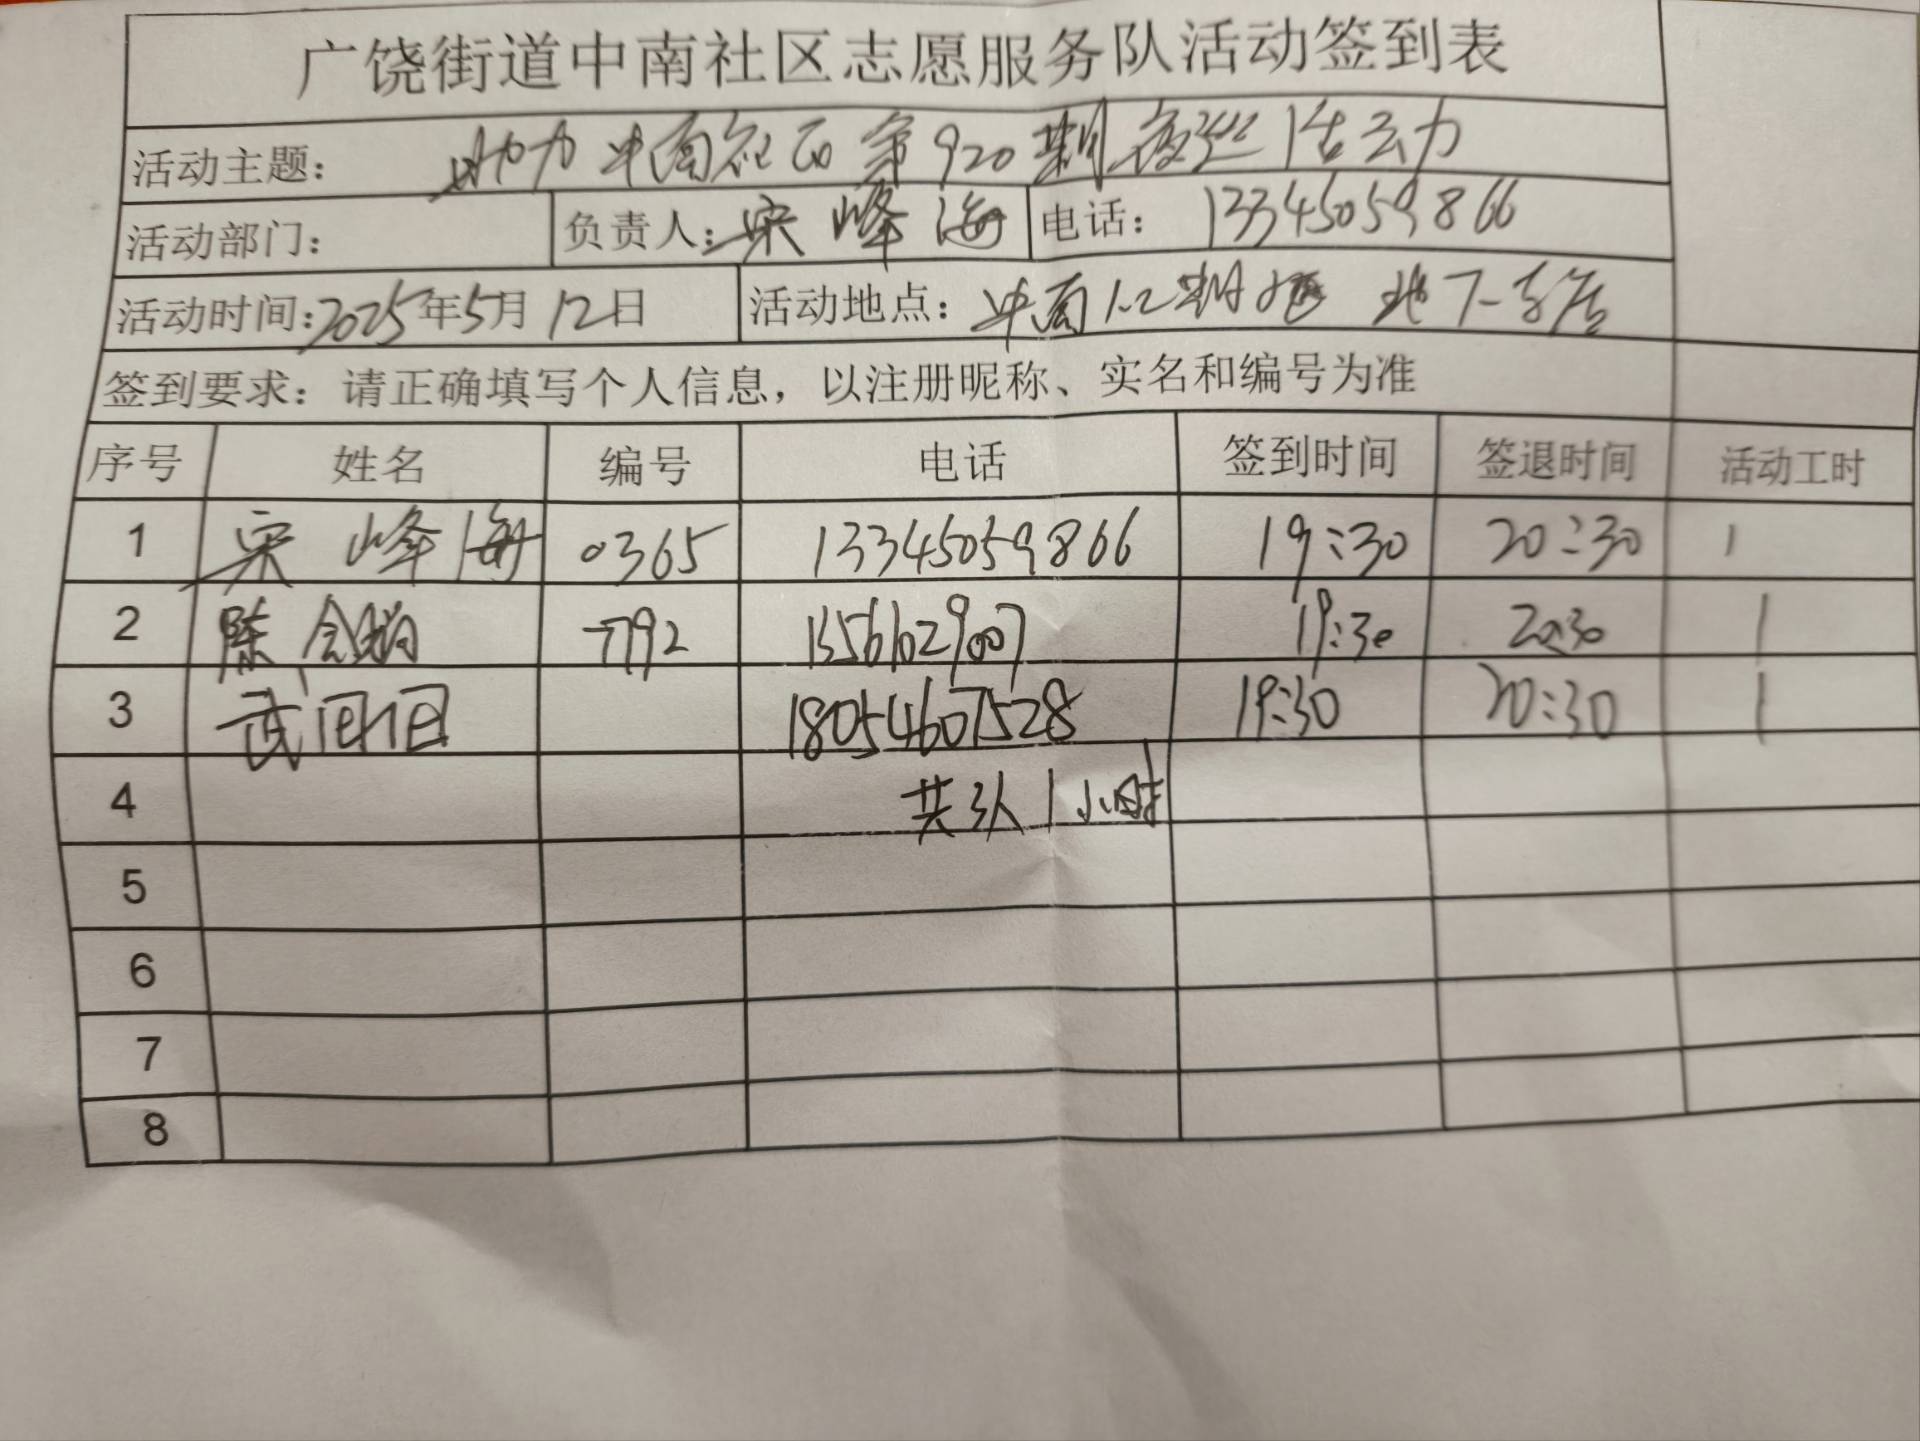 广饶街道中南社区志愿服务队活动签到表
活动主题: 助力中南社区第920期夜巡活动
活动部门: 负责人: 宋峰海 电话: 13345059866
活动时间: 2025年5月12日 活动地点: 中南1.2期 地下
签到要求: 请正确填写个人信息，以注册昵称、实名和编号为准
序号 姓名 编号 电话 签到时间 签退时间 活动工时
1 宋峰海 0365 13345059866 19:30 20:30 1
2 陈 7792 13561029007 19:30 20:30 1
3 武 18054607528 19:30 20:30 1
4 共3人1小时
5
6
7
8